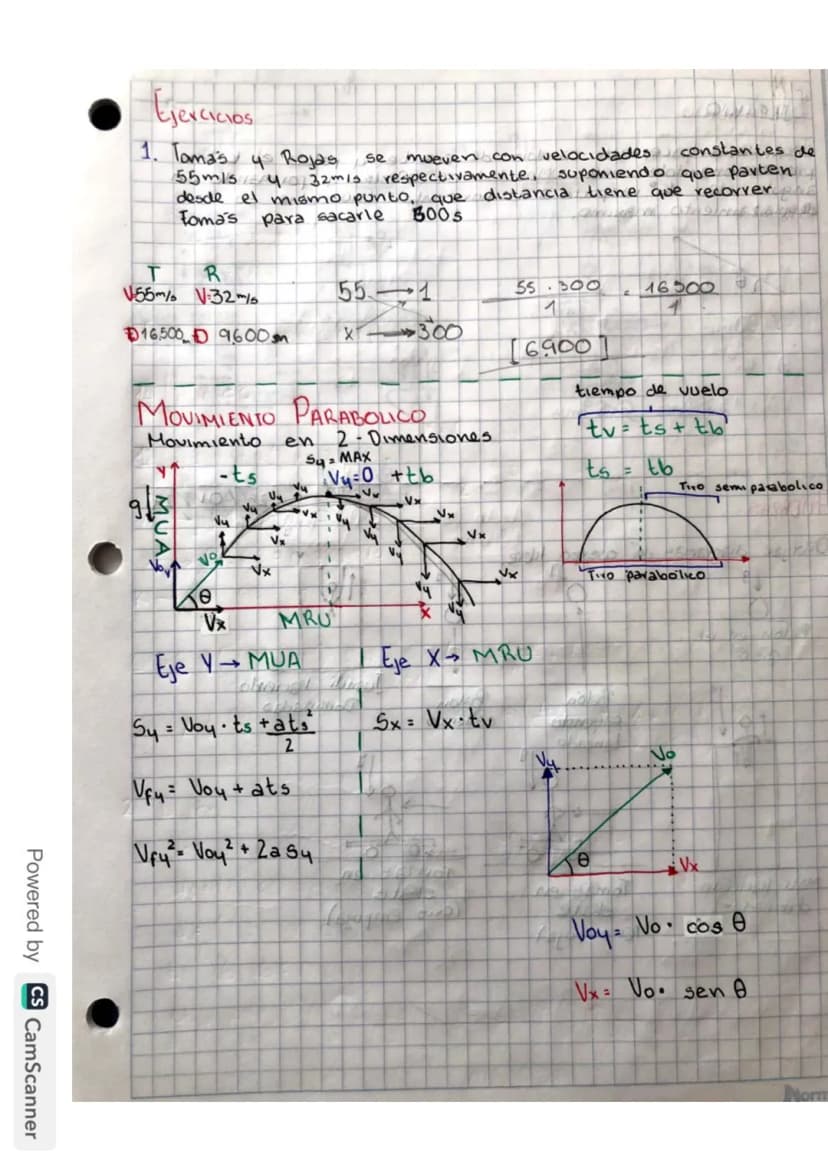 Ejercicios
1. Tomás y Rojas se mueven con velocidades constantes de
55m/s y 32m/s respectivamente, suponiendo que parten
desde el mismo punto, que distancia tiene que recorrer
Tomás para sacarle 300s
T R
V=55m/s V=32m/s
D 16500 D 9600m
55 → 1
x → 300
55 . 300 = 16500
1 1
[6900]
MOVIMIENTO PARABOLICO
Movimiento en 2-Dimensiones
tiempo de vuelo
tv = ts + tb
ts = tb
Sy = MAX
-ts Vy=0 +tb
Tiro semi parabolico
Tiro parabolico
Y
g↓
MUA
Voy
Vo
θ
Vx
MRU
X
Vy Vy Vy Vy
Vx Vx Vx Vx Vx Vx Vx Vx
Vy Vy Vy Vy Vy
Eje Y → MUA | Eje X → MRU
Sy = Voy · ts + ats²
2
Sx = Vx · tv
Vfy = Voy + ats
Vfy² = Voy² + 2a Sy
Vy Vo
θ Vx
Voy = Vo · cos θ
Vx = Vo · sen θ
Norm
Powered by CS CamScanner